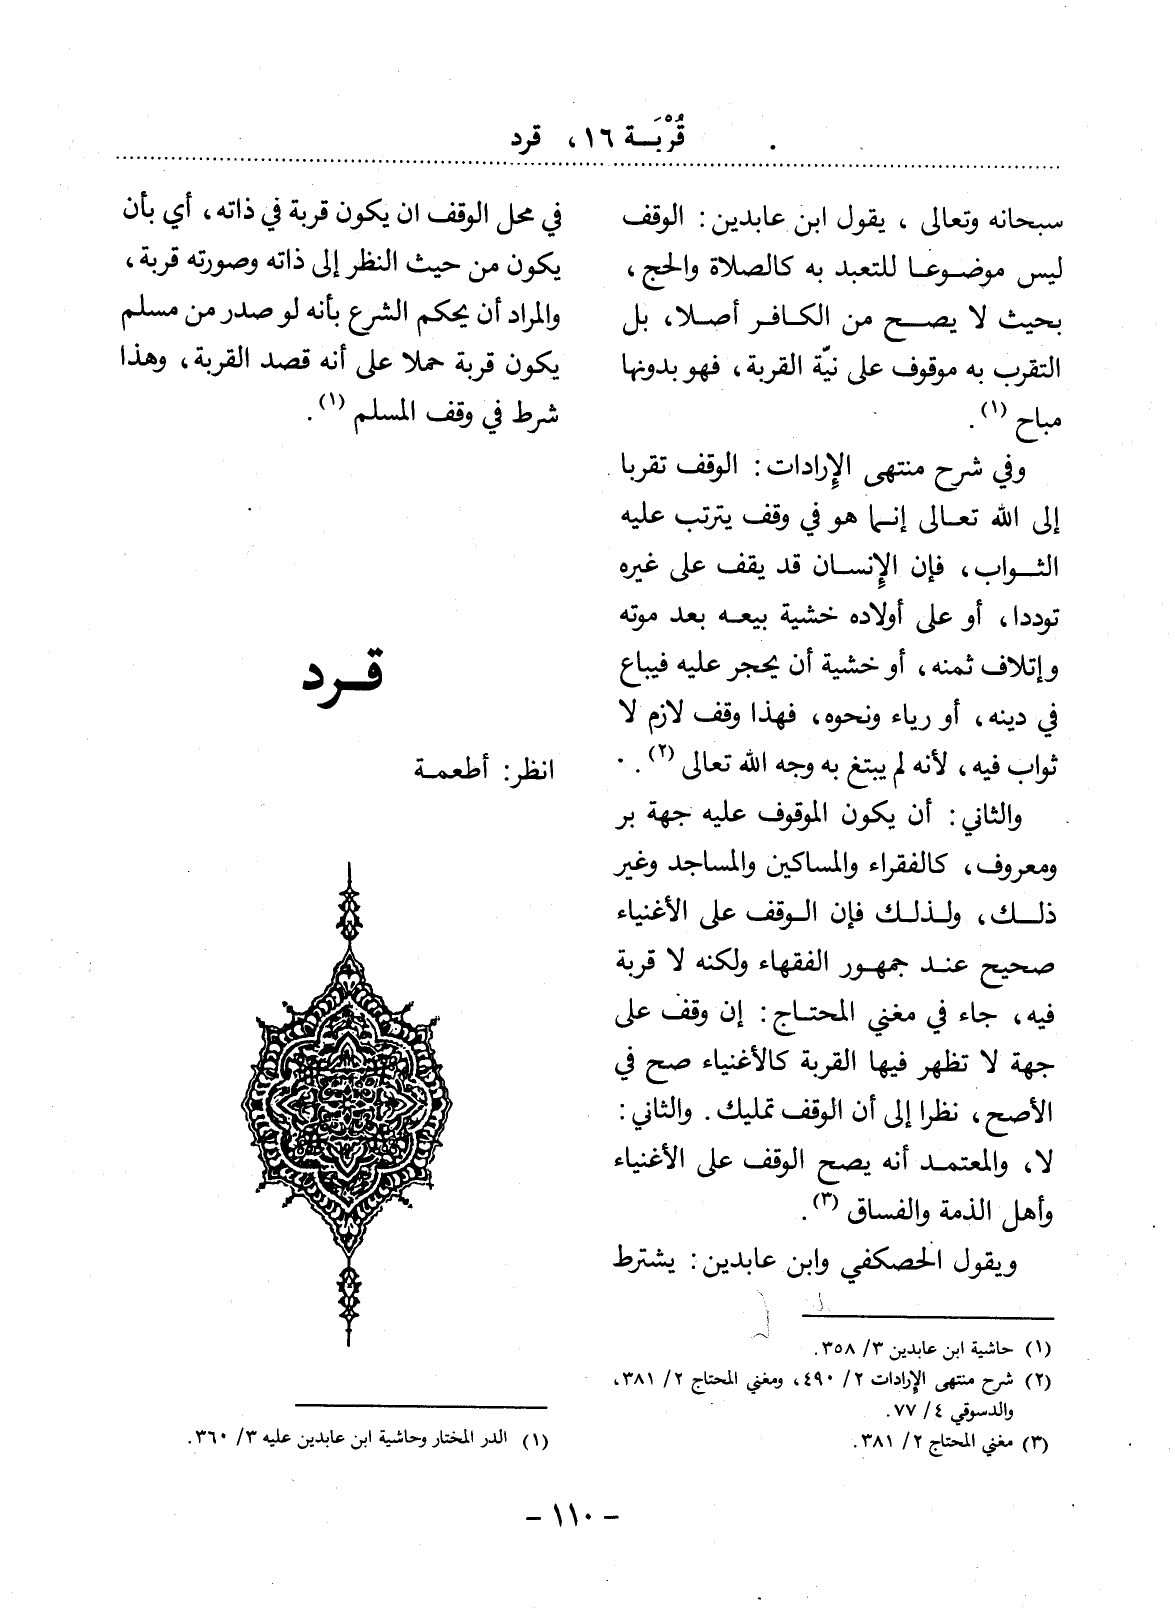 قُرْبَـة ١٦، قرد
سبحانه وتعالى ، يقول ابن عابدين: الوقف
ليس موضوعا للتعبد به كالصلاة والحج،
بحيث لا يصح من الكافر أصلا، بل
التقرب به موقوف على نيّة القربة، فهو بدونها
مباح (١).
وفي شرح منتهى الإرادات: الوقف تقربا
إلى الله تعالى إنما هو في وقف يترتب عليه
الثواب، فإن الإنسان قد يقف على غيره
توددا، أو على أولاده خشية بيعه بعد موته
وإتلاف ثمنه، أو خشية أن يحجر عليه فيباع
في دينه، أو رياء ونحوه، فهذا وقف لازم لا
ثواب فيه، لأنه لم يبتغ به وجه الله تعالى (٢).
والثاني: أن يكون الموقوف عليه جهة بر
ومعروف، كالفقراء والمساكين والمساجد وغير
ذلك، ولذلك فإن الوقف على الأغنياء
صحيح عند جمهور الفقهاء ولكنه لا قربة
فيه، جاء في مغني المحتاج: إن وقف على
جهة لا تظهر فيها القربة كالأغنياء صح في
الأصح، نظرا إلى أن الوقف تمليك. والثاني:
لا، والمعتمد أنه يصح الوقف على الأغنياء
وأهل الذمة والفساق (٣).
ويقول الحصكفي وابن عابدين: يشترط
(١) حاشية ابن عابدين ٣/ ٣٥٨.
(٢) شرح منتهى الإرادات ٢/ ٤٩٠، ومغني المحتاج ٢/ ٣٨١،
والدسوقي ٤/ ٧٧.
(٣) مغني المحتاج ٢/ ٣٨١.
في محل الوقف ان يكون قربة في ذاته، أي بأن
يكون من حيث النظر إلى ذاته وصورته قربة،
والمراد أن يحكم الشرع بأنه لو صدر من مسلم
يكون قربة حملا على أنه قصد القربة، وهذا
شرط في وقف المسلم (١).
قـرد
انظر: أطعمة
(١) الدر المختار وحاشية ابن عابدين عليه ٣/ ٣٦٠.
- ١١٠ -